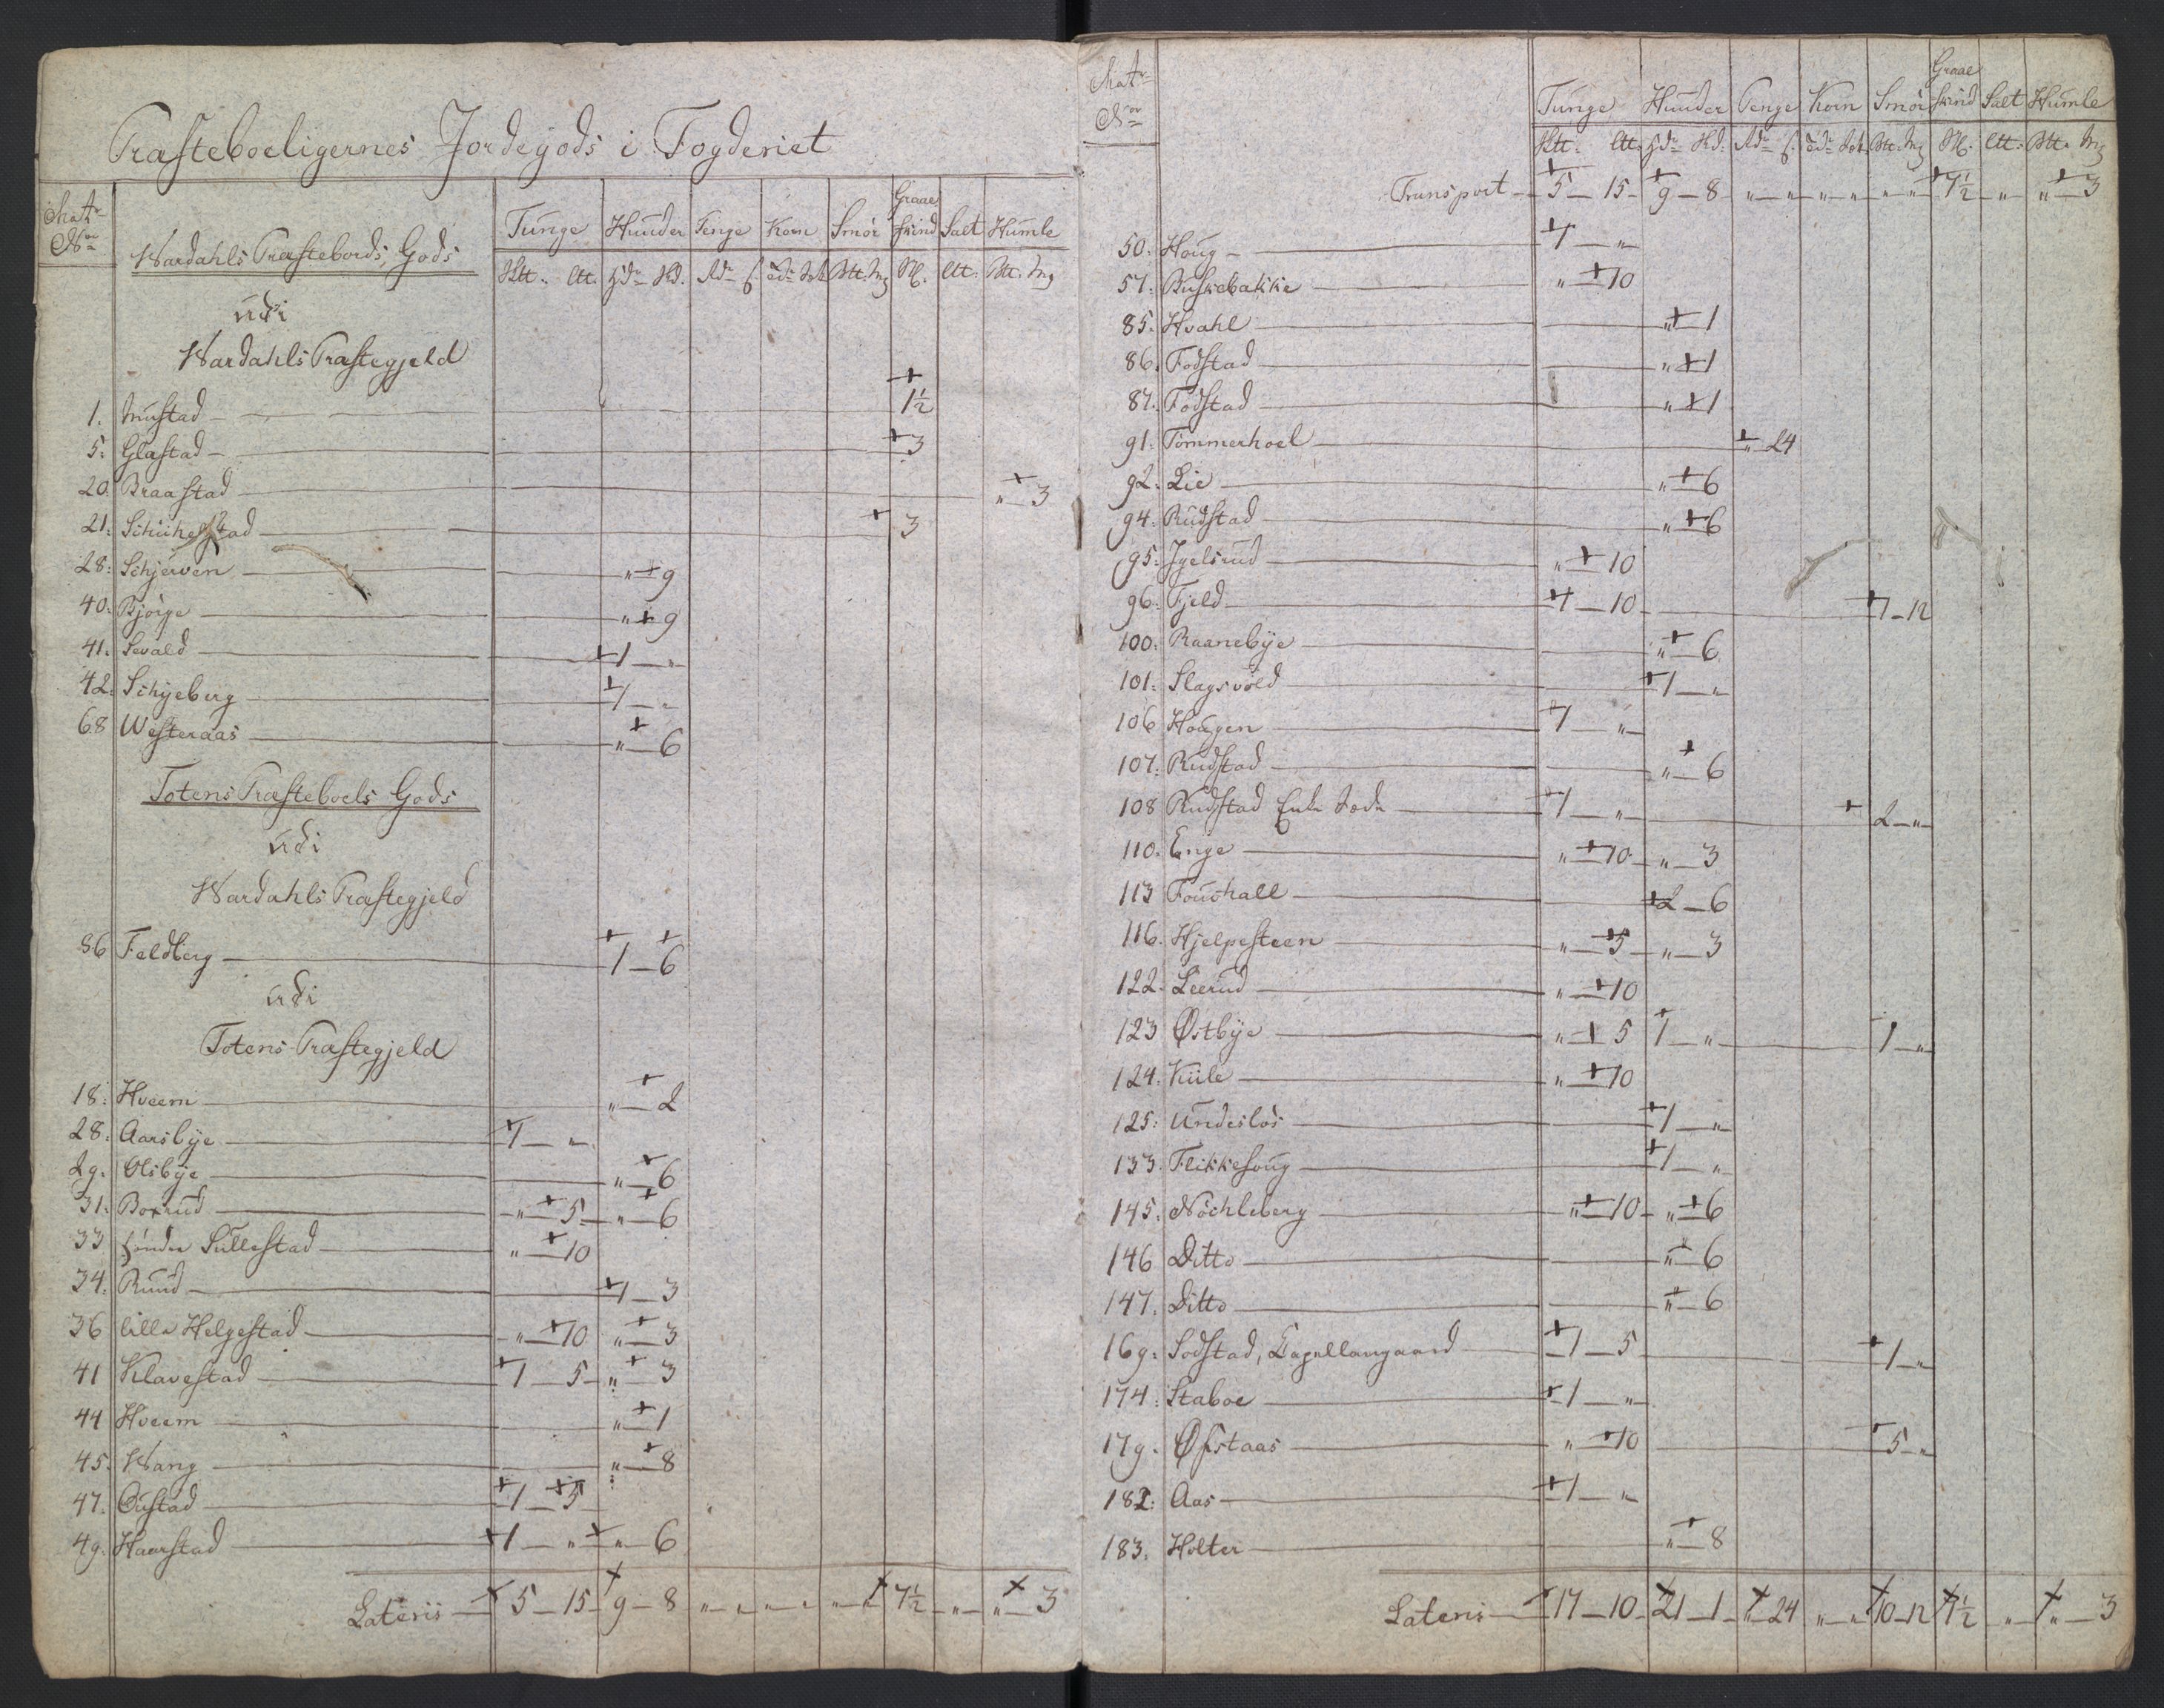 Præsteboeligernes Jordegods i Fogderiet
Matr No
Tunge Huuder Penge Korn Smör Graae Skind Salt Humle
Wardahls Præstebords Gods
udi
Wardahls Præstegjeld
1. Mustad 1½
5. Glæstad 3
20. Braastad " 3
21. Schichelstad 3
28. Schjerven " 9
40. Bjørge " 9
41. Sevald 1 "
42. Schyeberg 1 "
68 Westeraas " 6
Totens Præsteboels Gods
udi
Wardahls Præstegjeld
86 Feldberg 1 6
udi
Totens Præstegjeld
18. Hveem " 2
28. Aarsbye 1 "
29. Olsbye " 6
31. Borrud " 5 " 6
33 søndre Sullestad " 10
34. Ruud 1 3
36 lille Helgestad " 10 " 3
41 Klavestad 1 5 " 3
44 Hveem " 1
45. Wang " 8
47. Oustad 1 5
49. Haarstad 1 " " 6
Lateris 5 15 9 8 " " " " " " 7½ " " 3
Matr No
Tunge Huuder Penge Korn Smör Graae Skind Salt Humle
Transport 5 15 9 8 " " " " " " 7½ " " 3
50. Houg 1 "
57. Buskebakke " 10
85. Hvahl " 1
86. Fodstad " 1
87. Fodstad " 1
91. Tömmerhoel " 24
92. Lie " 6
94. Rudstad " 6
95. Igelsrud " 10
96. Fjeld 1 10 1 12
100. Raanebye " 6
101. Slagsvold 1 "
106 Hougen 1 "
107. Rudstad " 6
108 Rudstad Enke Sæde 1 " 2 "
110. Enge " 10 " 3
113 Fouchall 2 6
116. Hjelpesteen " 5 " 3
122. Leerud " 10
123 Østbye " 5 1 " 1 "
124. Kiile " 10
125. Undeslös 1 "
133. Flikkesoug 1 "
145. Nöchleberg " 10 " 6
146 Ditto " 6
147. Ditto " 6
169. Sodstad, Capellangaard 1 5 1 "
174. Staboe 1 "
179. Øfstaas " 10 5 "
182. Aas 1 "
183. Holter " 8
Lateris 17 10 21 1 " 24 " " 10 12 7½ " " 3